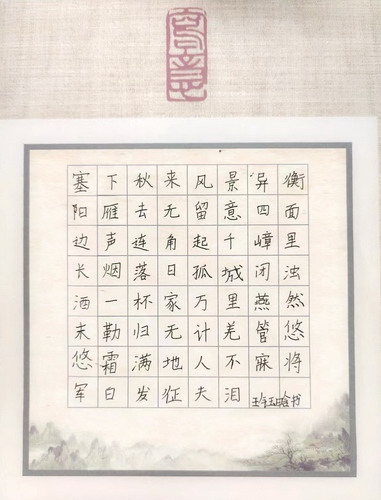 塞下秋来风景异衡
阳雁去无留意四面
边声连角起千嶂里
长烟落日孤城闭浊
酒一杯家万里燕然
未勒归无计羌管悠
悠霜满地人不寐将
军白发征夫泪